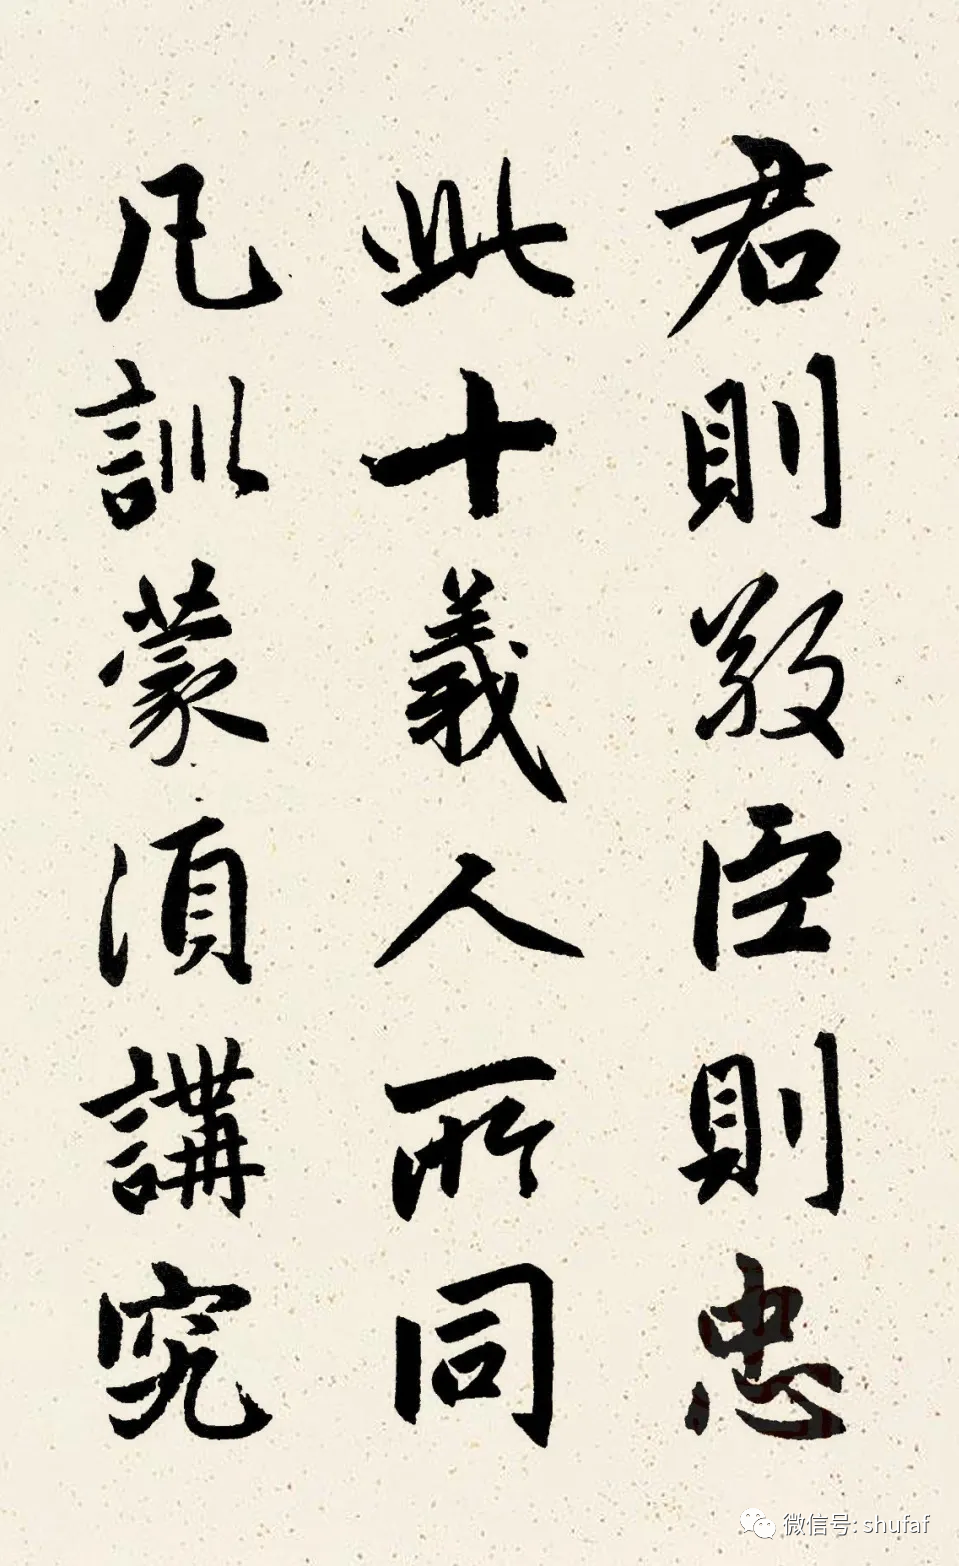 君則敬臣則忠
此十義人所同
凡訓蒙須講究
微信号: shufaf